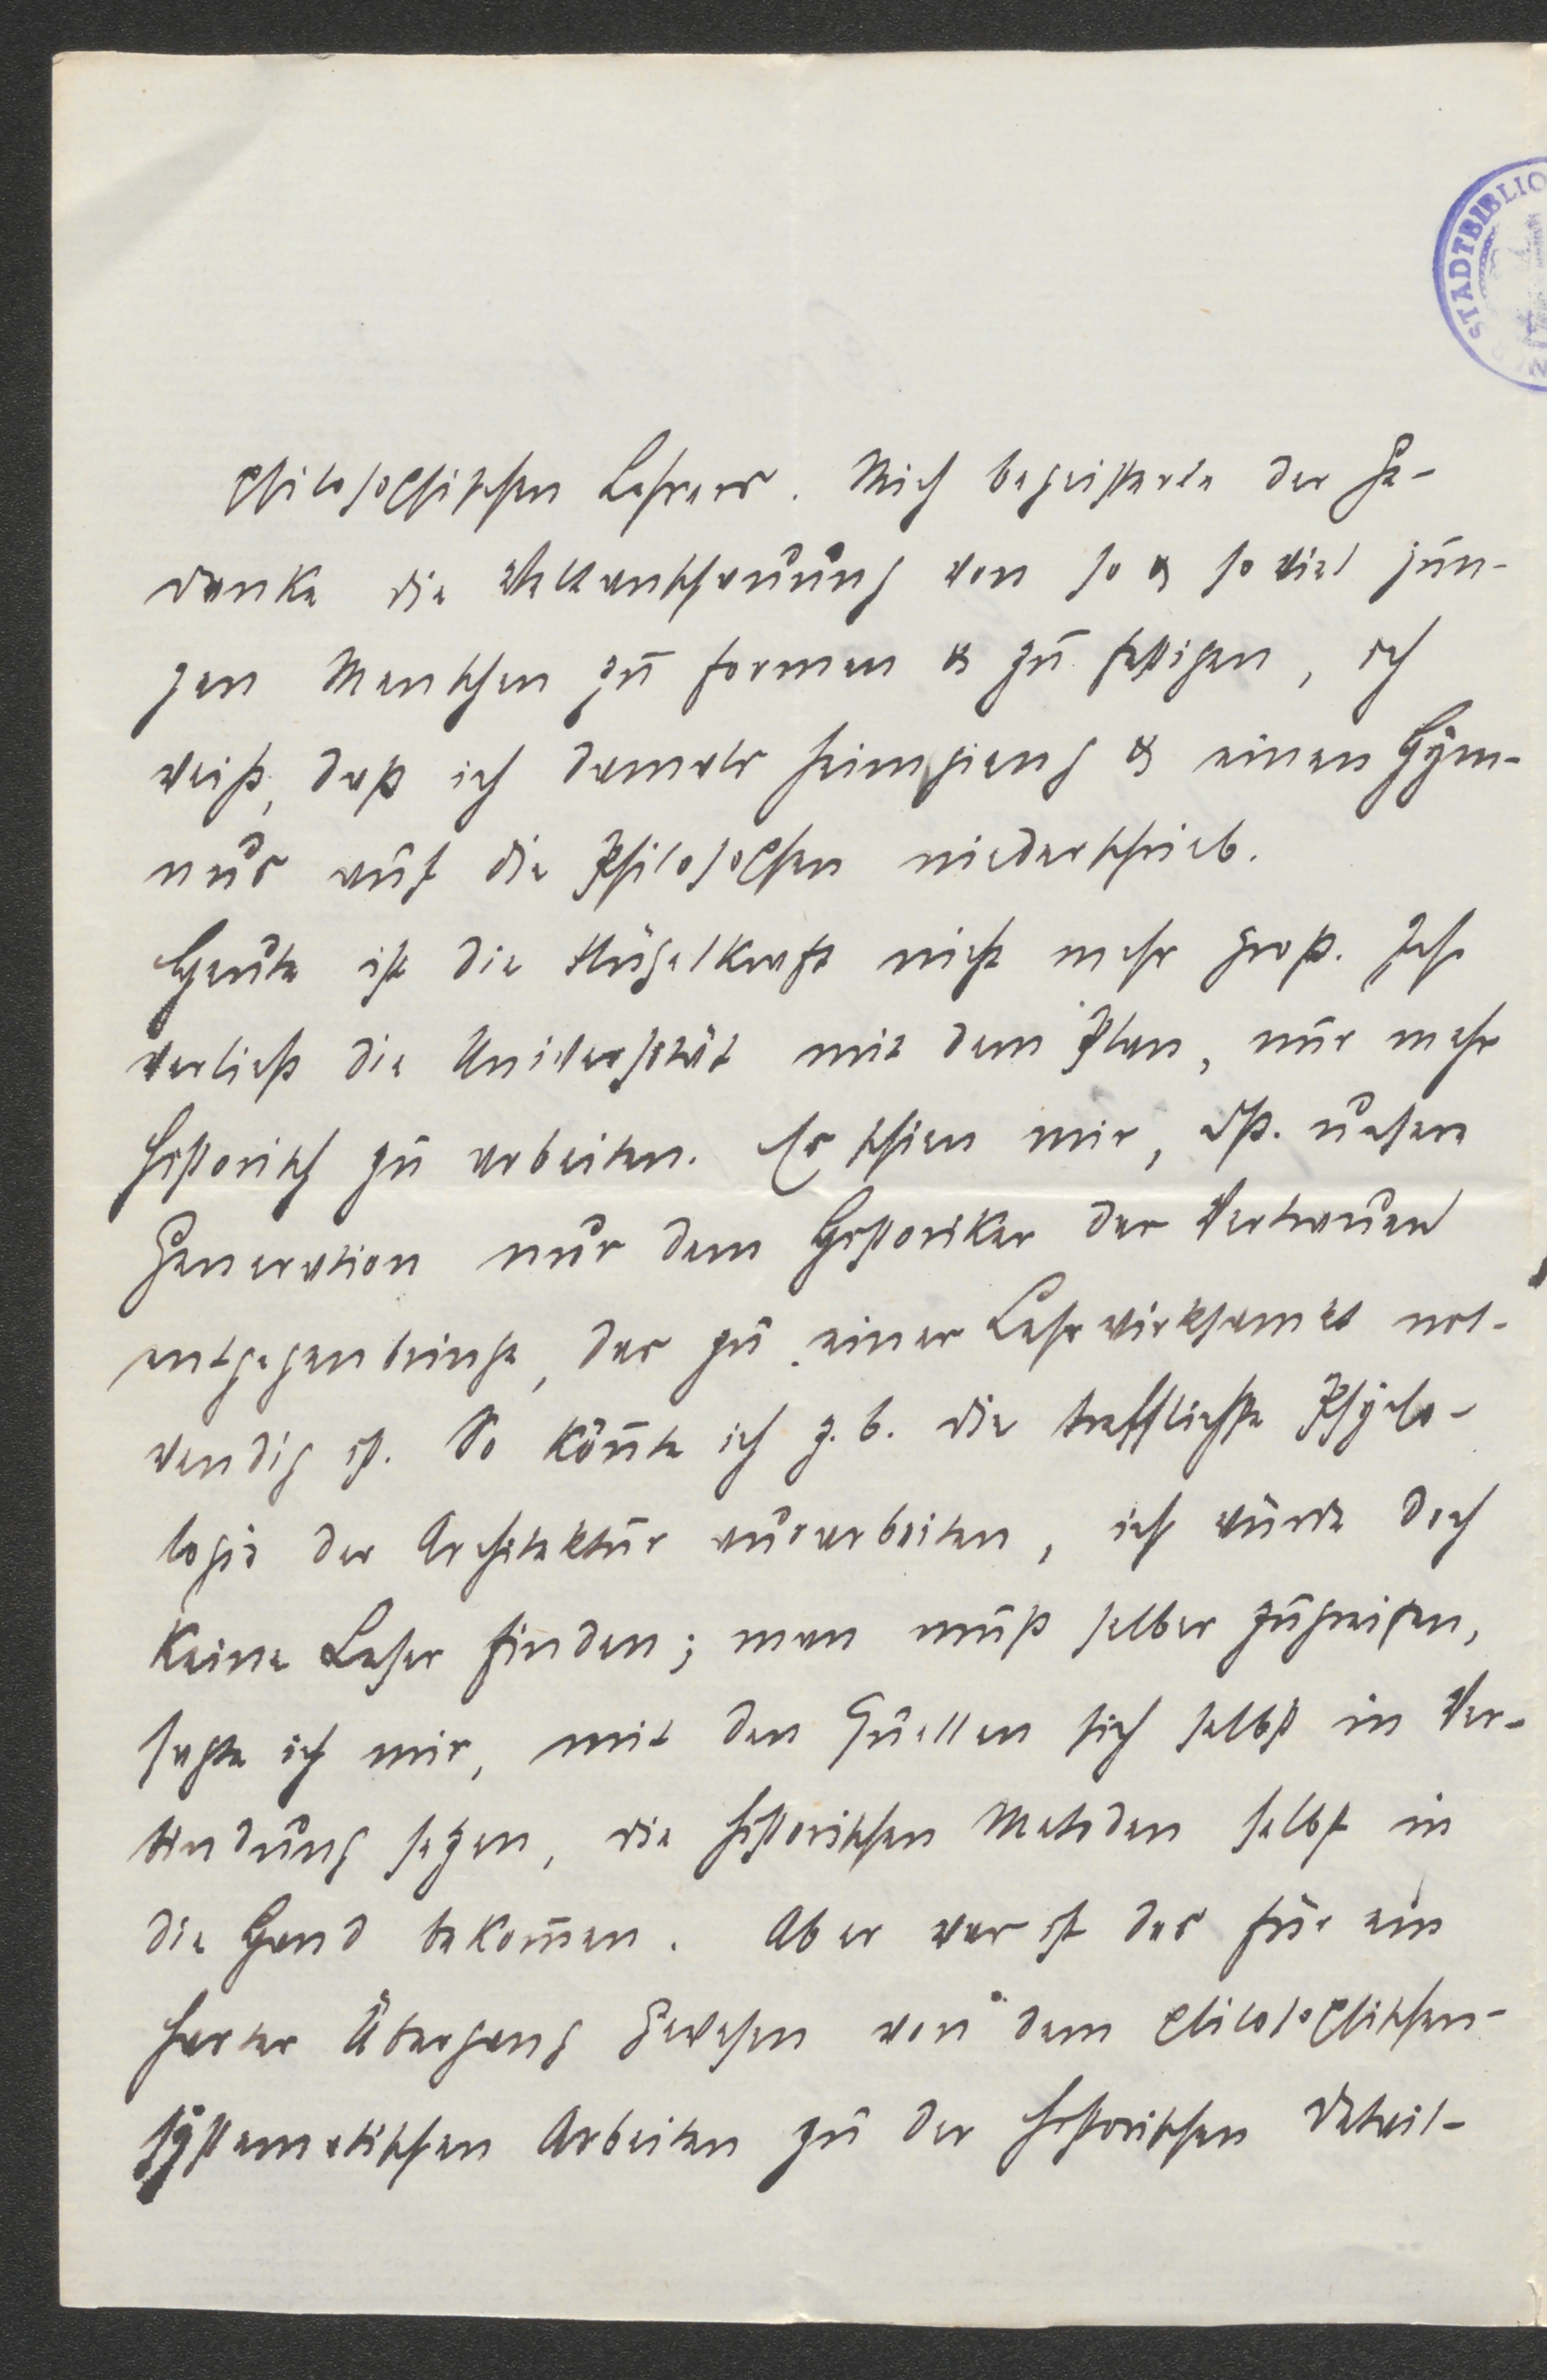 STADTBIBLIO
philosophischen Lehrers. Mich begeisterte der Ge-
danke die Weltanschauung von so & so viel jun-
gen Menschen zu formen & zu festigen, ich
weiß, daß ich damals heimgieng & einen Hym-
nus auf die Philosophen niederschrieb.
Heute ist die Flügelkraft nicht mehr groß. Ich
verließ die Universität mit dem Plan, nur mehr
historisch zu arbeiten. Es schien mir, dß. unsere
Generation nur dem Historiker das Vertrauen
entgegenbringe, das zu einer Lehrwirksamkt not-
wendig ist. So könnte ich z. b. die trefflichste Psycho-
logie der Architektur ausarbeiten, ich würde doch
keine Leser finden; man muß selber zugreifen,
sagte ich mir, mit den Quellen sich selbst in Ver-
bindung setzen, die historischen Metoden selbst in
die Hand bekommen. Aber was ist das für ein
harter Übergang gewesen von dem philosophischen-
systematischen Arbeiten zu der historischen Detail-